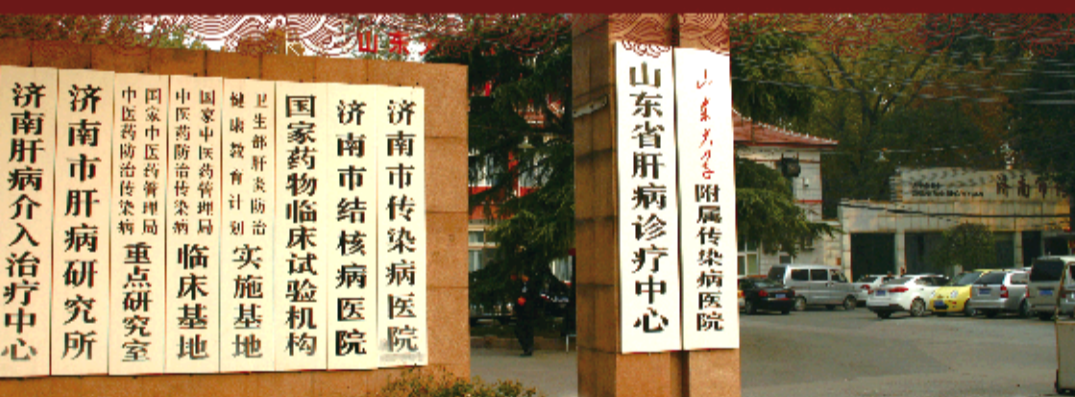 山东大
济南肝病介入治疗中心
济南市肝病研究所
国家中医药管理局
中医药防治传染病
重点研究室
国家中医药管理局
中医药防治传染病
临床基地
卫生部肝炎防治
健康教育计划
实施基地
国家药物临床试验机构
济南市结核病医院
济南市传染病医院
山东省肝病诊疗中心
山东大学附属传染病医院
济南市